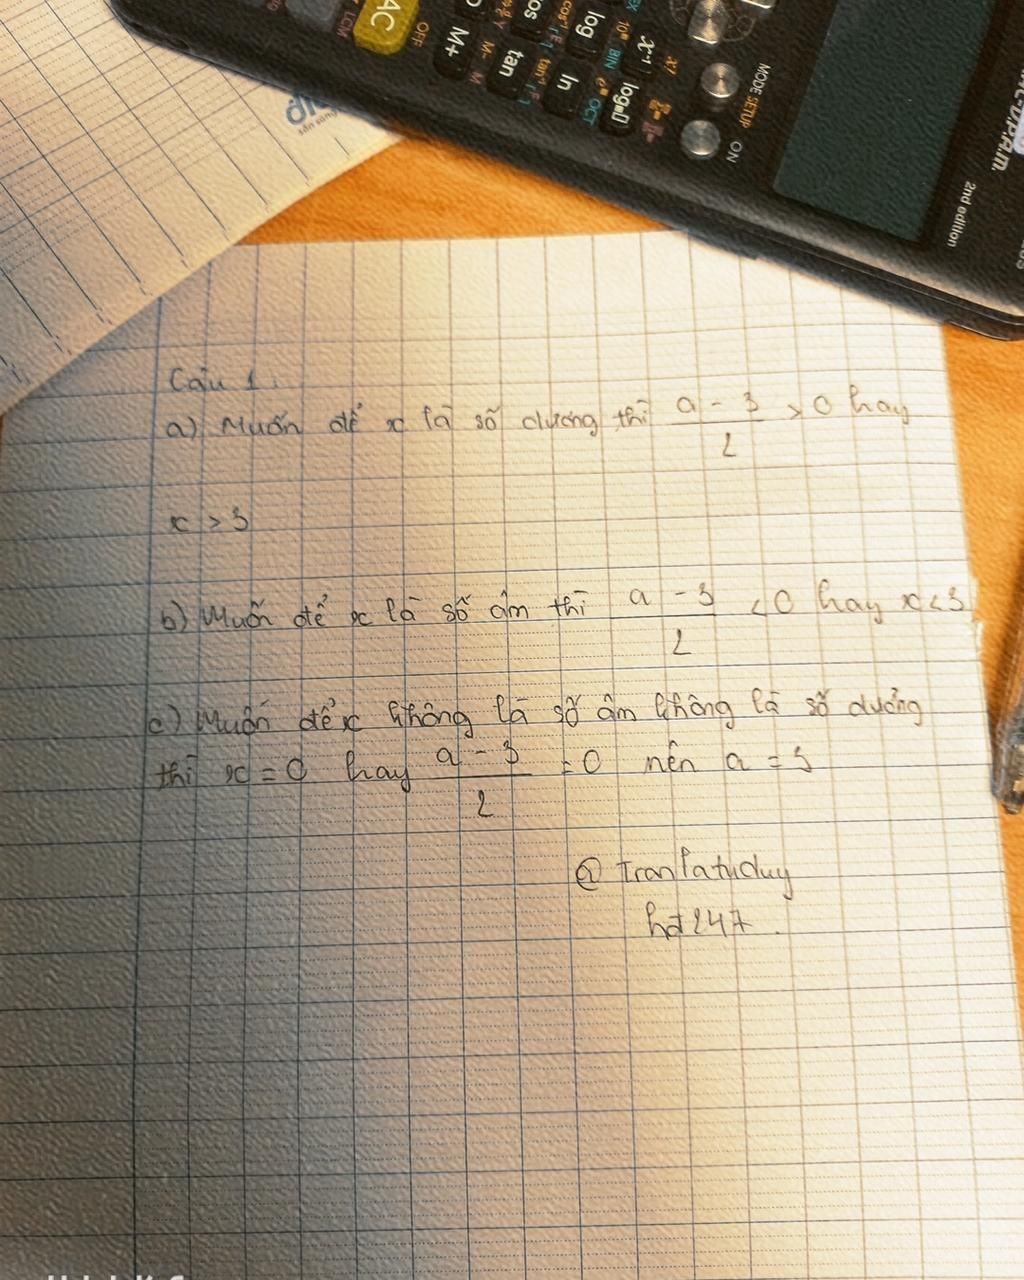 AC
OFF
M+
M-
M
tan
tan⁻¹
log
ln
10■
BIN
OCT
x⁻¹
x!
MODE SETUP
ON
2nd edition
LCM
Câu 1:
a) Muốn để x là số dương thì \frac{a - 3}{2} > 0 hay
x > 3
b) Muốn để x là số âm thì \frac{a - 3}{2} < 0 hay x < 3
c) Muốn để x không là số âm không là số dưởng
thì x = 0 hay \frac{a - 3}{2} = 0 nên a = 3
@ Tranlatuduy
hd247.